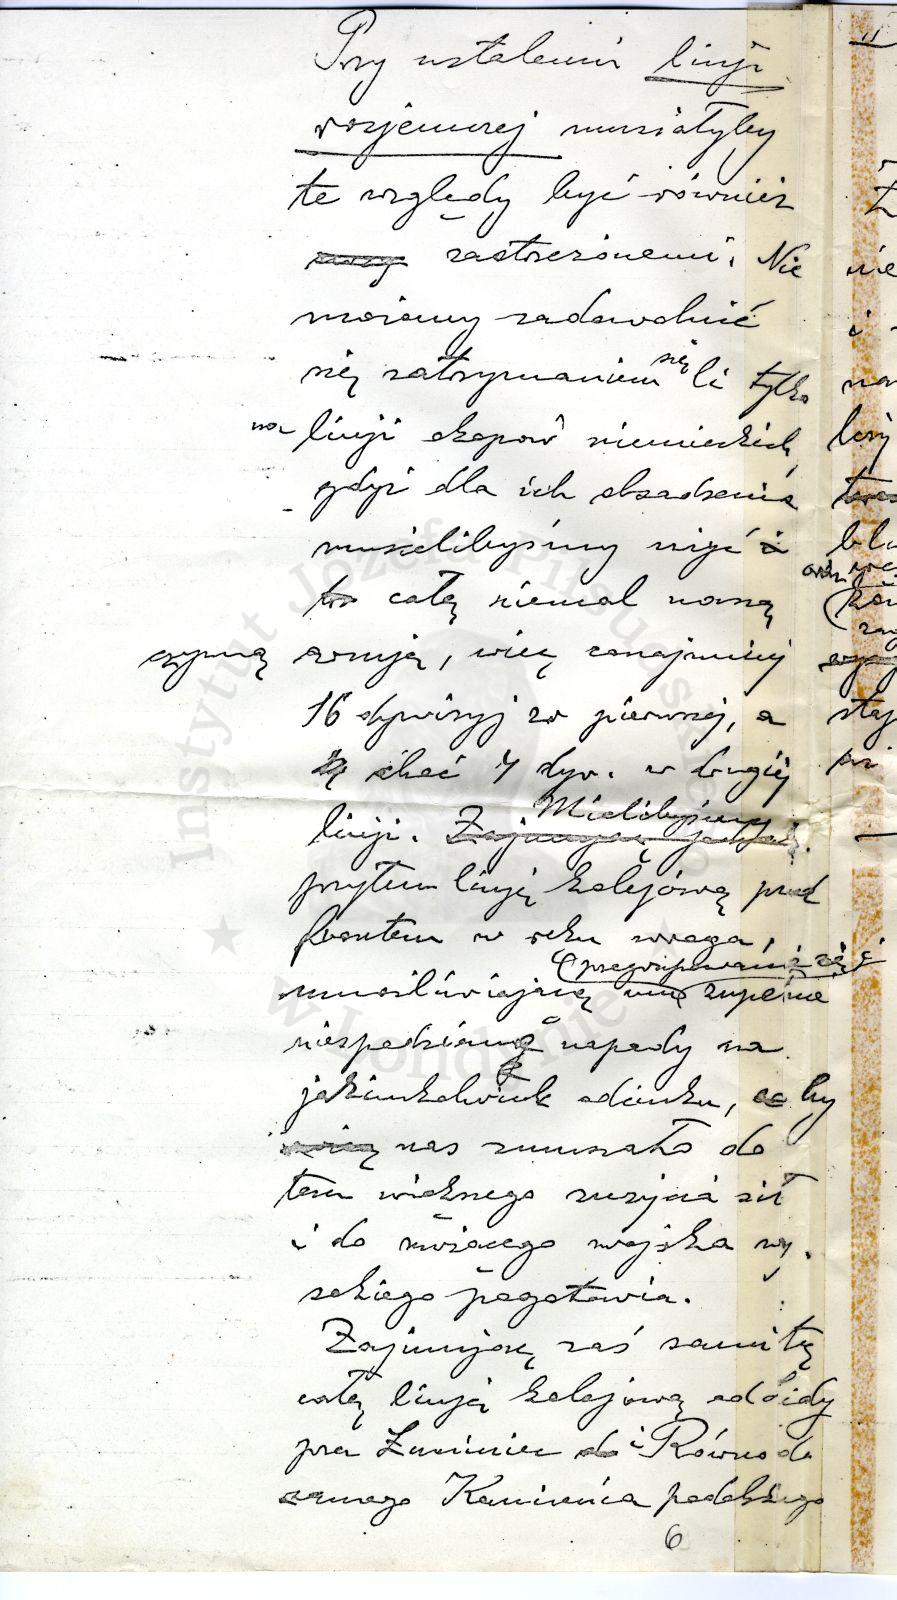 Przy ustaleniu linji
rozjemczej musiałyby
te względy być również
zastrzeżonemi. Nie
możemy zadowolnić
się zatrzymaniem się li tylko
na linji okopów niemieckich,
gdyż dla ich obsadzenia
musielibyśmy użyć
całą niemal naszą
czynną armją, więc conajmniej
16 dywizyj w pierwszej, a
choć 4 dyw. w drugiej
linji. Mielibyśmy
przytem linję kolejową przed
frontem w ręku wroga,
umożliwiającą mu przegrupowania zupełnie
niespodziane napady na
jakimkolwiek odcinku, co by
nas zmuszało do
tem większego zużycia sił
i do męczącego wojska wy-
sokiego pogotowia.
Zajmując zaś sami tę
całą linją kolejową od Żidy
przez Łuniniec i Równo do
samego Kamieńca podolskiego
6
Instytut Józefa Piłsudskiego
w Londynie